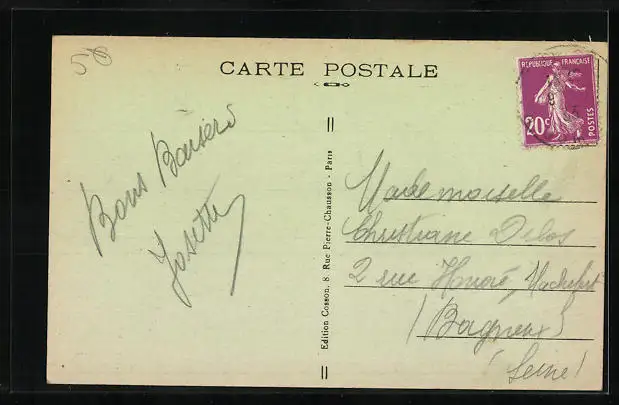 58
CARTE POSTALE
REPUBLIQUE FRANÇAISE
20c POSTES
Bons Baisers
Josette
Edition Cosson, 8, Rue Pierre-Chausson - Paris
Mademoiselle
Christiane Delos
2 rue Honoré
(Bagneux)
(Seine)